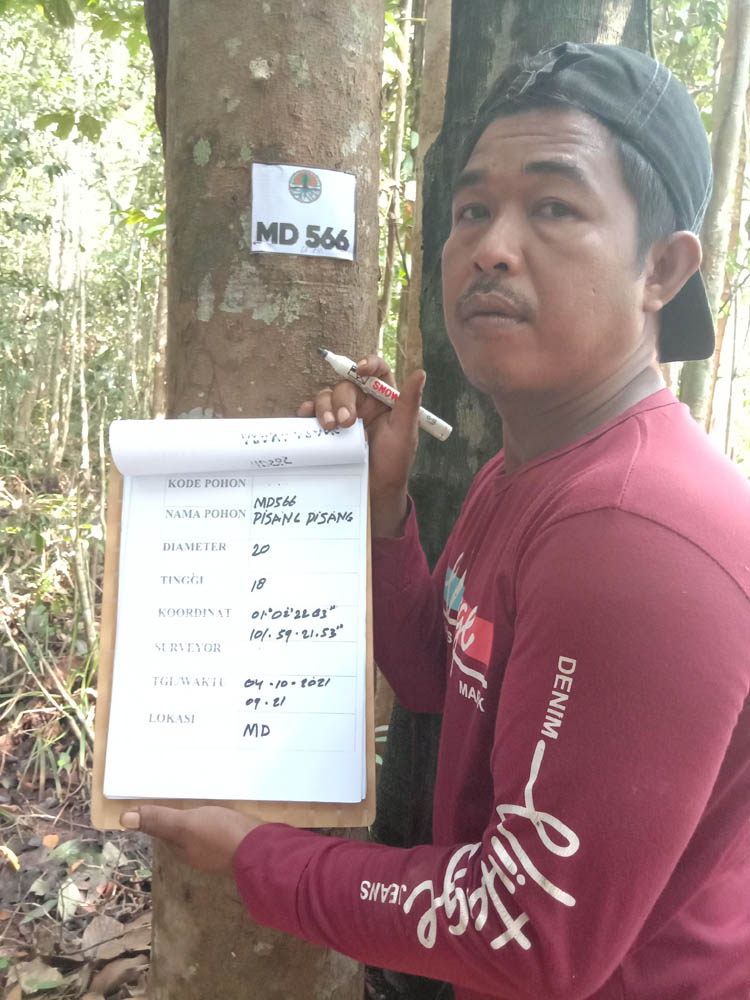 MD 566
SNOW
KODE POHON
MD566
NAMA POHON PISANG PISANG
DIAMETER 20
TINGGI 18
KOORDINAT 01°02'22.03"
101.59.21.53"
SURVEYOR
TGL/WAKTU 04.10.2021
09.21
LOKASI MD
DENIM
Vintage
JEANS